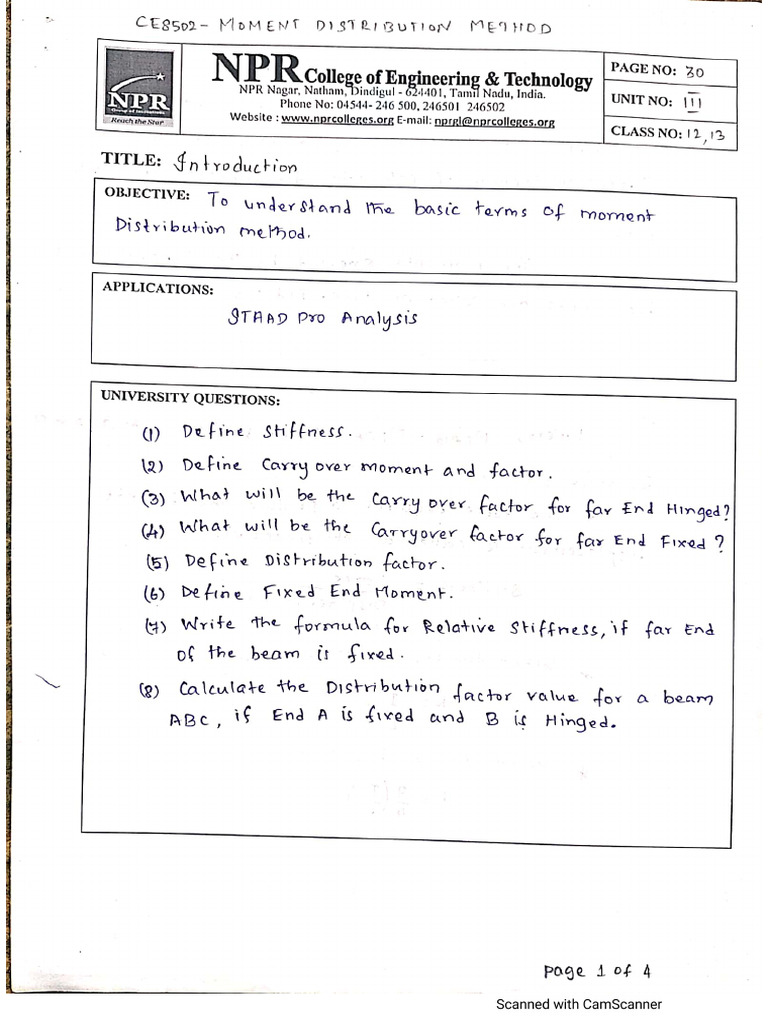 CE8502 - MOMENT DISTRIBUTION METHOD
NPR
Reach the Star
NPR College of Engineering & Technology
NPR Nagar, Natham, Dindigul - 624401, Tamil Nadu, India.
Phone No: 04544- 246 500, 246501 246502
Website : www.nprcolleges.org E-mail: nprgl@nprcolleges.org
PAGE NO: 30
UNIT NO: III
CLASS NO: 12,13
TITLE: Introduction
OBJECTIVE: To understand the basic terms of moment
Distribution method.
APPLICATIONS:
STAAD Pro Analysis
UNIVERSITY QUESTIONS:
(1) Define Stiffness.
(2) Define Carry over moment and factor.
(3) What will be the Carry over factor for far End Hinged?
(4) What will be the Carryover factor for far End Fixed ?
(5) Define Distribution factor.
(6) Define Fixed End Moment.
(7) Write the formula for Relative Stiffness, if far End
of the beam is fixed.
(8) Calculate the Distribution factor value for a beam
ABC, if End A is fixed and B is Hinged.
Page 1 of 4
Scanned with CamScanner